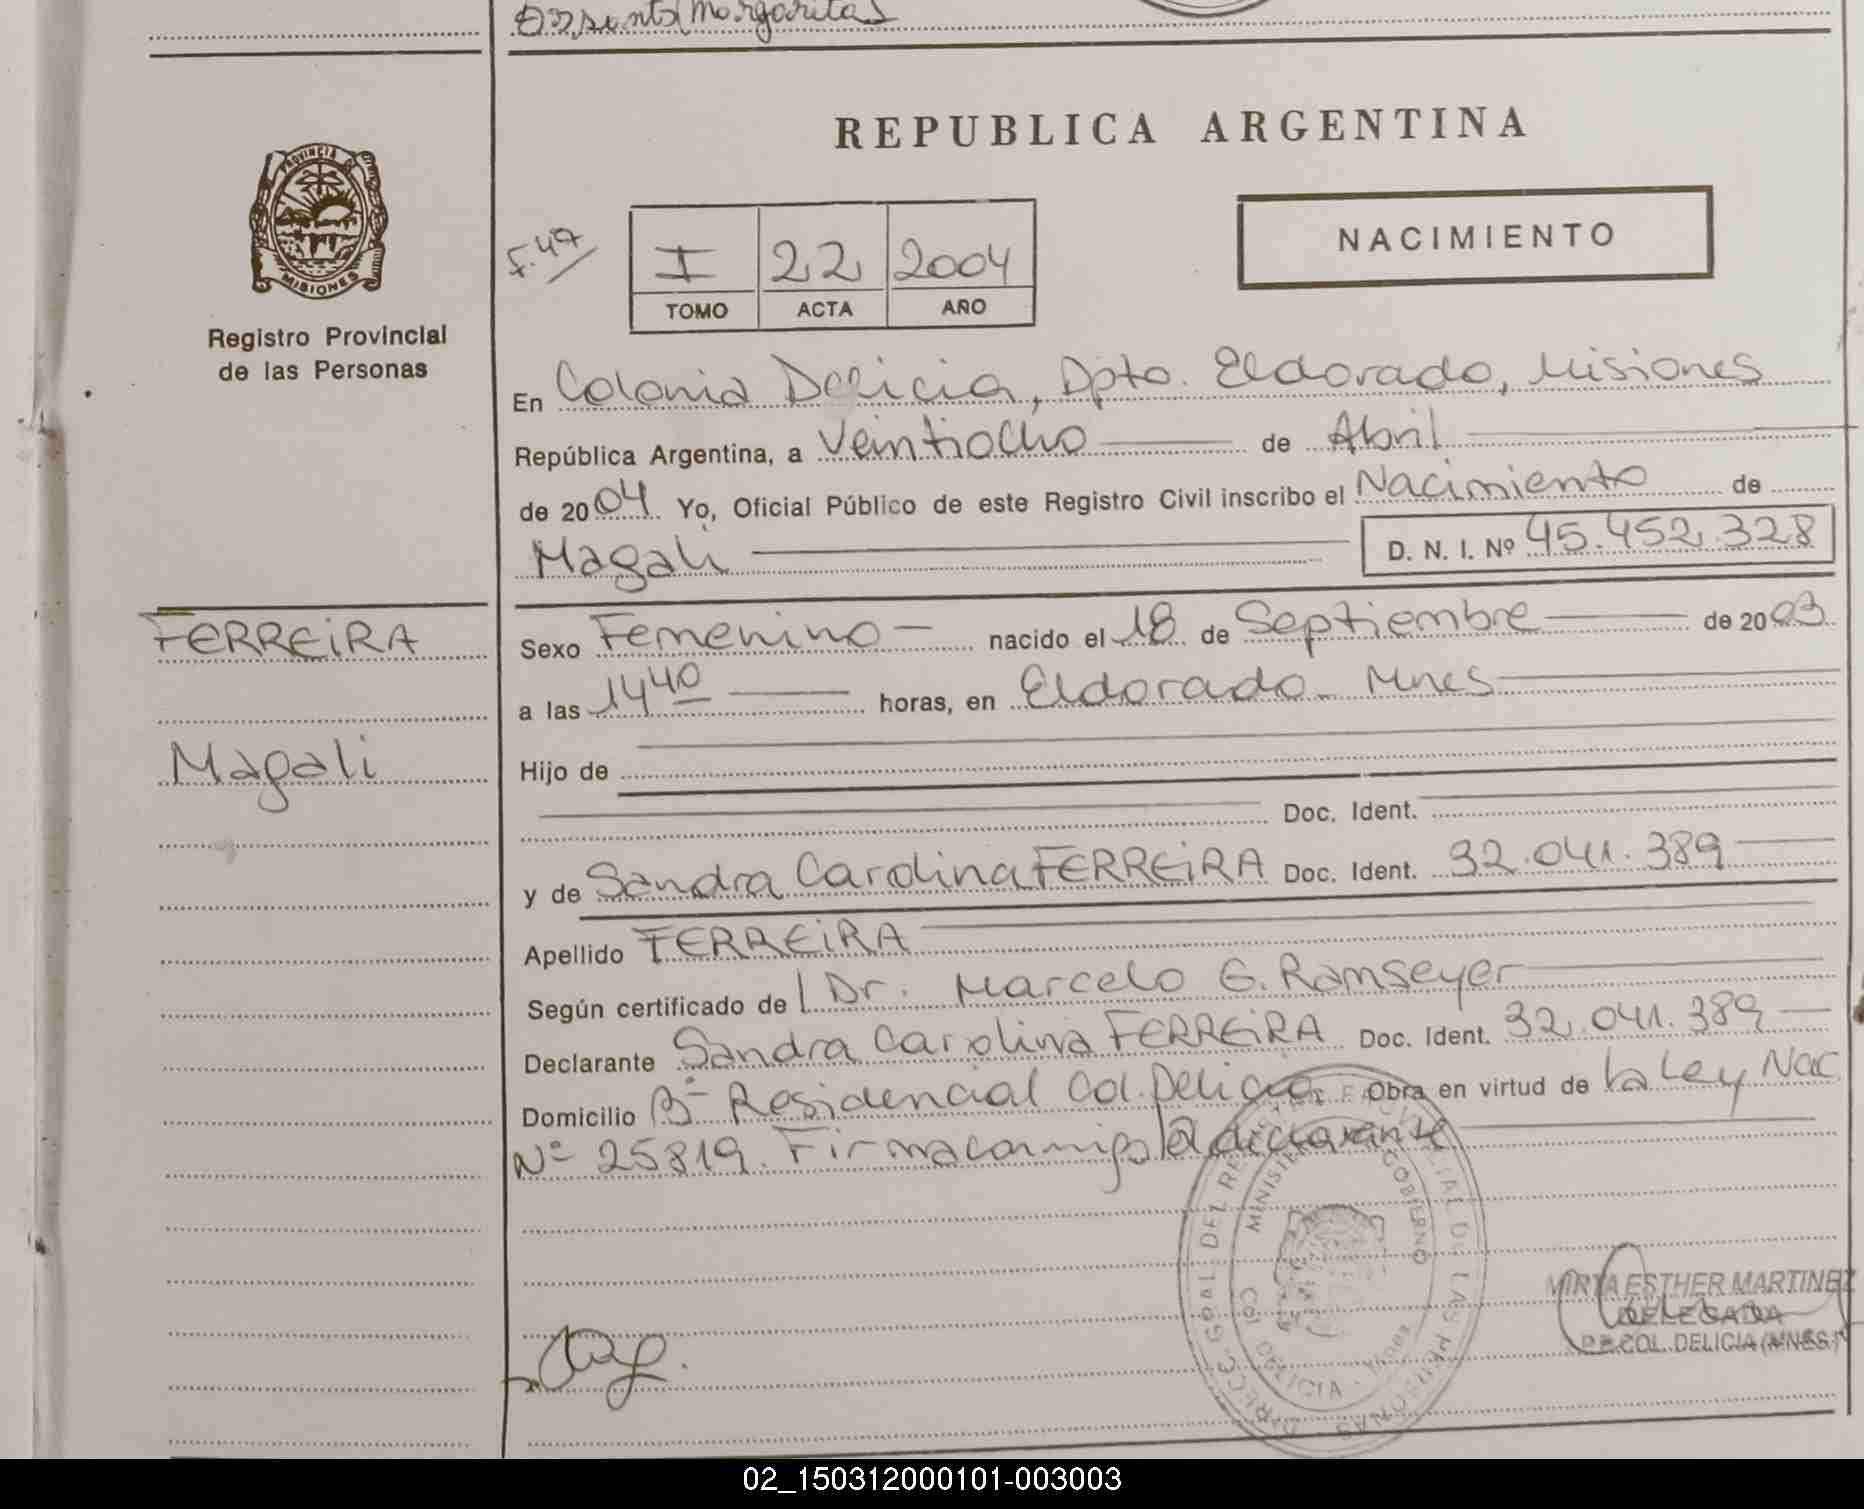 Margarita
REPUBLICA ARGENTINA
PROVINCIA DE
MISIONES
Registro Provincial
de las Personas
F. 47
I 22 2004
TOMO ACTA AÑO
NACIMIENTO
En Colonia Delicia, Dpto. Eldorado, Misiones
República Argentina, a Veintiocho de Abril
de 2004 Yo, Oficial Público de este Registro Civil inscribo el Nacimiento de
Magali D. N. I. Nº 45.452.328
FERREiRA
Magali
Sexo Femenino nacido el 18 de Septiembre de 2003
a las 14 40 horas, en Eldorado - Mnes
Hijo de
Doc. Ident.
y de Sandra Carolina FERREiRA Doc. Ident. 32.041.389
Apellido FERREiRA
Según certificado de Dr. Marcelo G. Ramseyer
Declarante Sandra Carolina FERREiRA Doc. Ident. 32.041.389
Domicilio Bº Residencial Col. Delicia Obra en virtud de la Ley Nac
Nº 25819. Firma conmigo la declarante
DIRECC. GRAL DEL REGISTRO PROVINCIAL DE LAS PERSONAS
MINISTERIO GOBIERNO
COL DELICIA
MIRTA ESTHER MARTINEZ
DELEGADA
COL. DELICIA (MNES.)
02_150312000101-003003